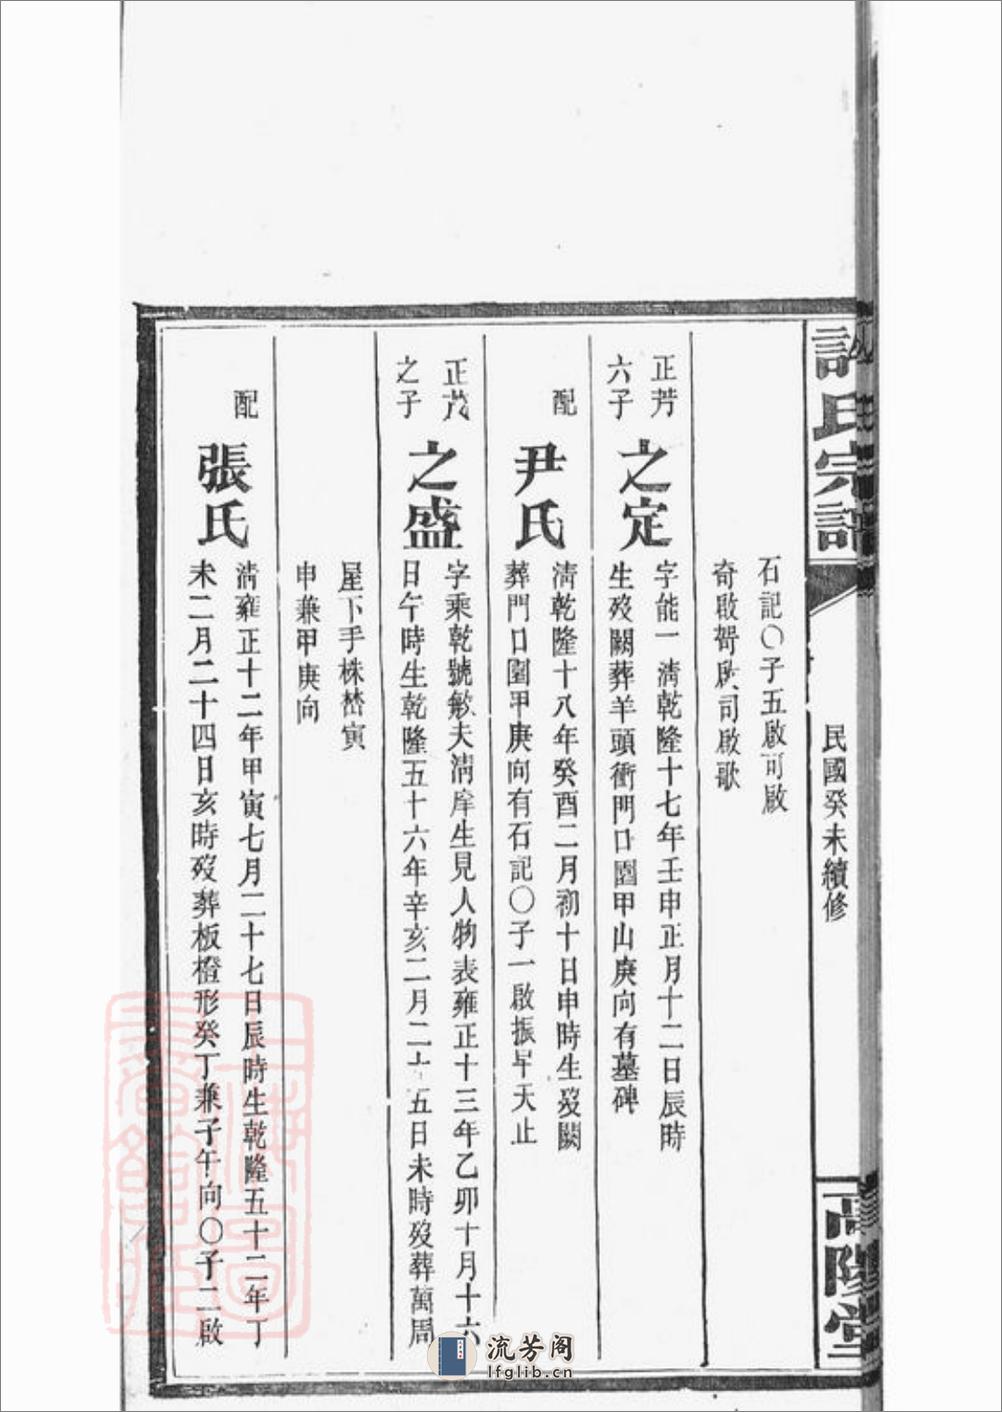 許氏宗譜
民國癸未續修
高陽堂
石記〇子五啟可啟
奇啟哿啟司啟歌
正芳
六子
之定
字能一清乾隆十七年壬申正月十二日辰時
生歿闕葬羊頭衝門口園甲山庚向有墓碑
配
尹氏
清乾隆十八年癸酉二月初十日申時生歿闕
葬門口園甲庚向有石記〇子一啟振早夭止
正茂
之子
之盛
字乘乾號敏夫清庠生見人物表雍正十三年乙卯十月十六
日午時生乾隆五十六年辛亥二月二十五日未時歿葬萬周
屋下手株林寅
申兼甲庚向
配
張氏
清雍正十二年甲寅七月二十七日辰時生乾隆五十二年丁
未二月二十四日亥時歿葬板橙形癸丁兼子午向〇子二啟
流芳阁
lfglib.cn